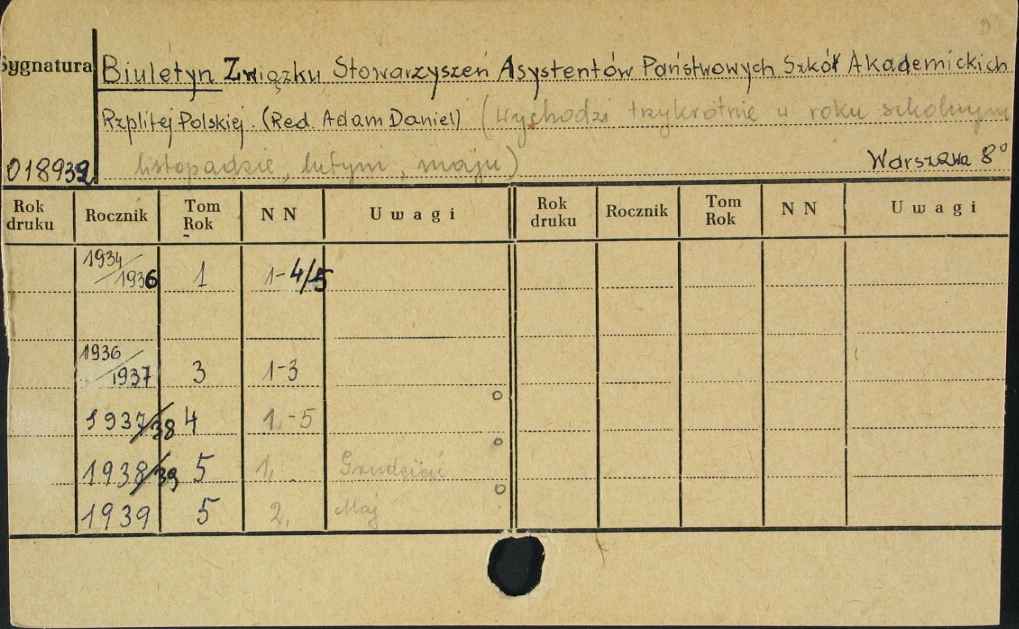 Sygnatura Biuletyn Związku Stowarzyszeń Asystentów Państwowych Szkół Akademickich
Rzplitej Polskiej. (Red. Adam Daniel) (Wychodzi trzykrotnie w roku szkolnym
018932 listopadzie, lutym, maju) Warszawa 8°
Rok druku Rocznik Tom Rok NN Uwagi Rok druku Rocznik Tom Rok NN Uwagi
1934/1936 1 1-4/5
1936/1937 3 1-3
1937/38 4 1-5
1938/39 5 1. Grudzień
1939 5 2. Maj